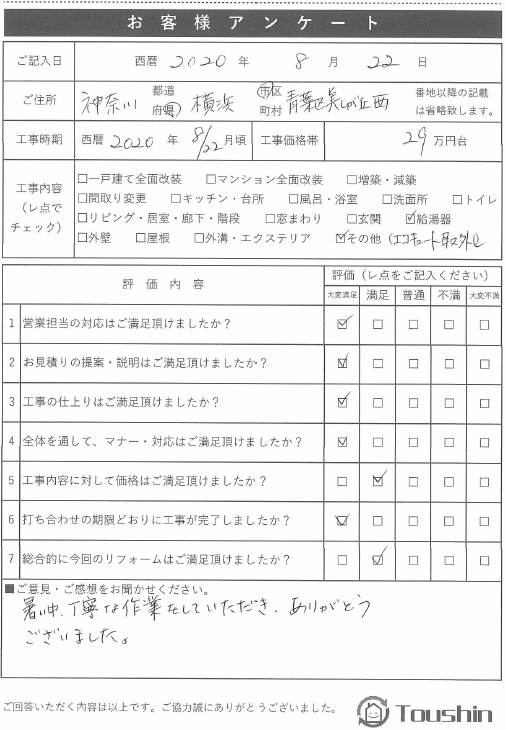 お客様アンケート
ご記入日 西暦 2020 年 8 月 22 日
ご住所 神奈川 都道府県 横浜 市区町村 青葉区美しが丘西 番地以降の記載は省略致します。
工事時期 西暦 2020 年 8/22 月頃 工事価格帯 29 万円台
工事内容（レ点でチェック）
□一戸建て全面改装 □マンション全面改装 □増築・減築
□間取り変更 □キッチン・台所 □風呂・浴室 □洗面所 □トイレ
□リビング・居室・廊下・階段 □窓まわり □玄関 ☑給湯器
□外壁 □屋根 □外溝・エクステリア ☑その他（エコキュート取り外し）
評価内容 評価（レ点をご記入ください）
大変満足 満足 普通 不満 大変不満
1 営業担当の対応はご満足頂けましたか？ ☑ □ □ □ □
2 お見積りの提案・説明はご満足頂けましたか？ ☑ □ □ □ □
3 工事の仕上りはご満足頂けましたか？ ☑ □ □ □ □
4 全体を通して、マナー・対応はご満足頂けましたか？ ☑ □ □ □ □
5 工事内容に対して価格はご満足頂けましたか？ □ ☑ □ □ □
6 打ち合わせの期限どおりに工事が完了しましたか？ ☑ □ □ □ □
7 総合的に今回のリフォームはご満足頂けましたか？ □ ☑ □ □ □
■ご意見・ご感想をお聞かせください。
暑い中、丁寧な作業をしていただき、ありがとう
ございました。
ご回答いただく内容は以上です。ご協力誠にありがとうございました。
Toushin